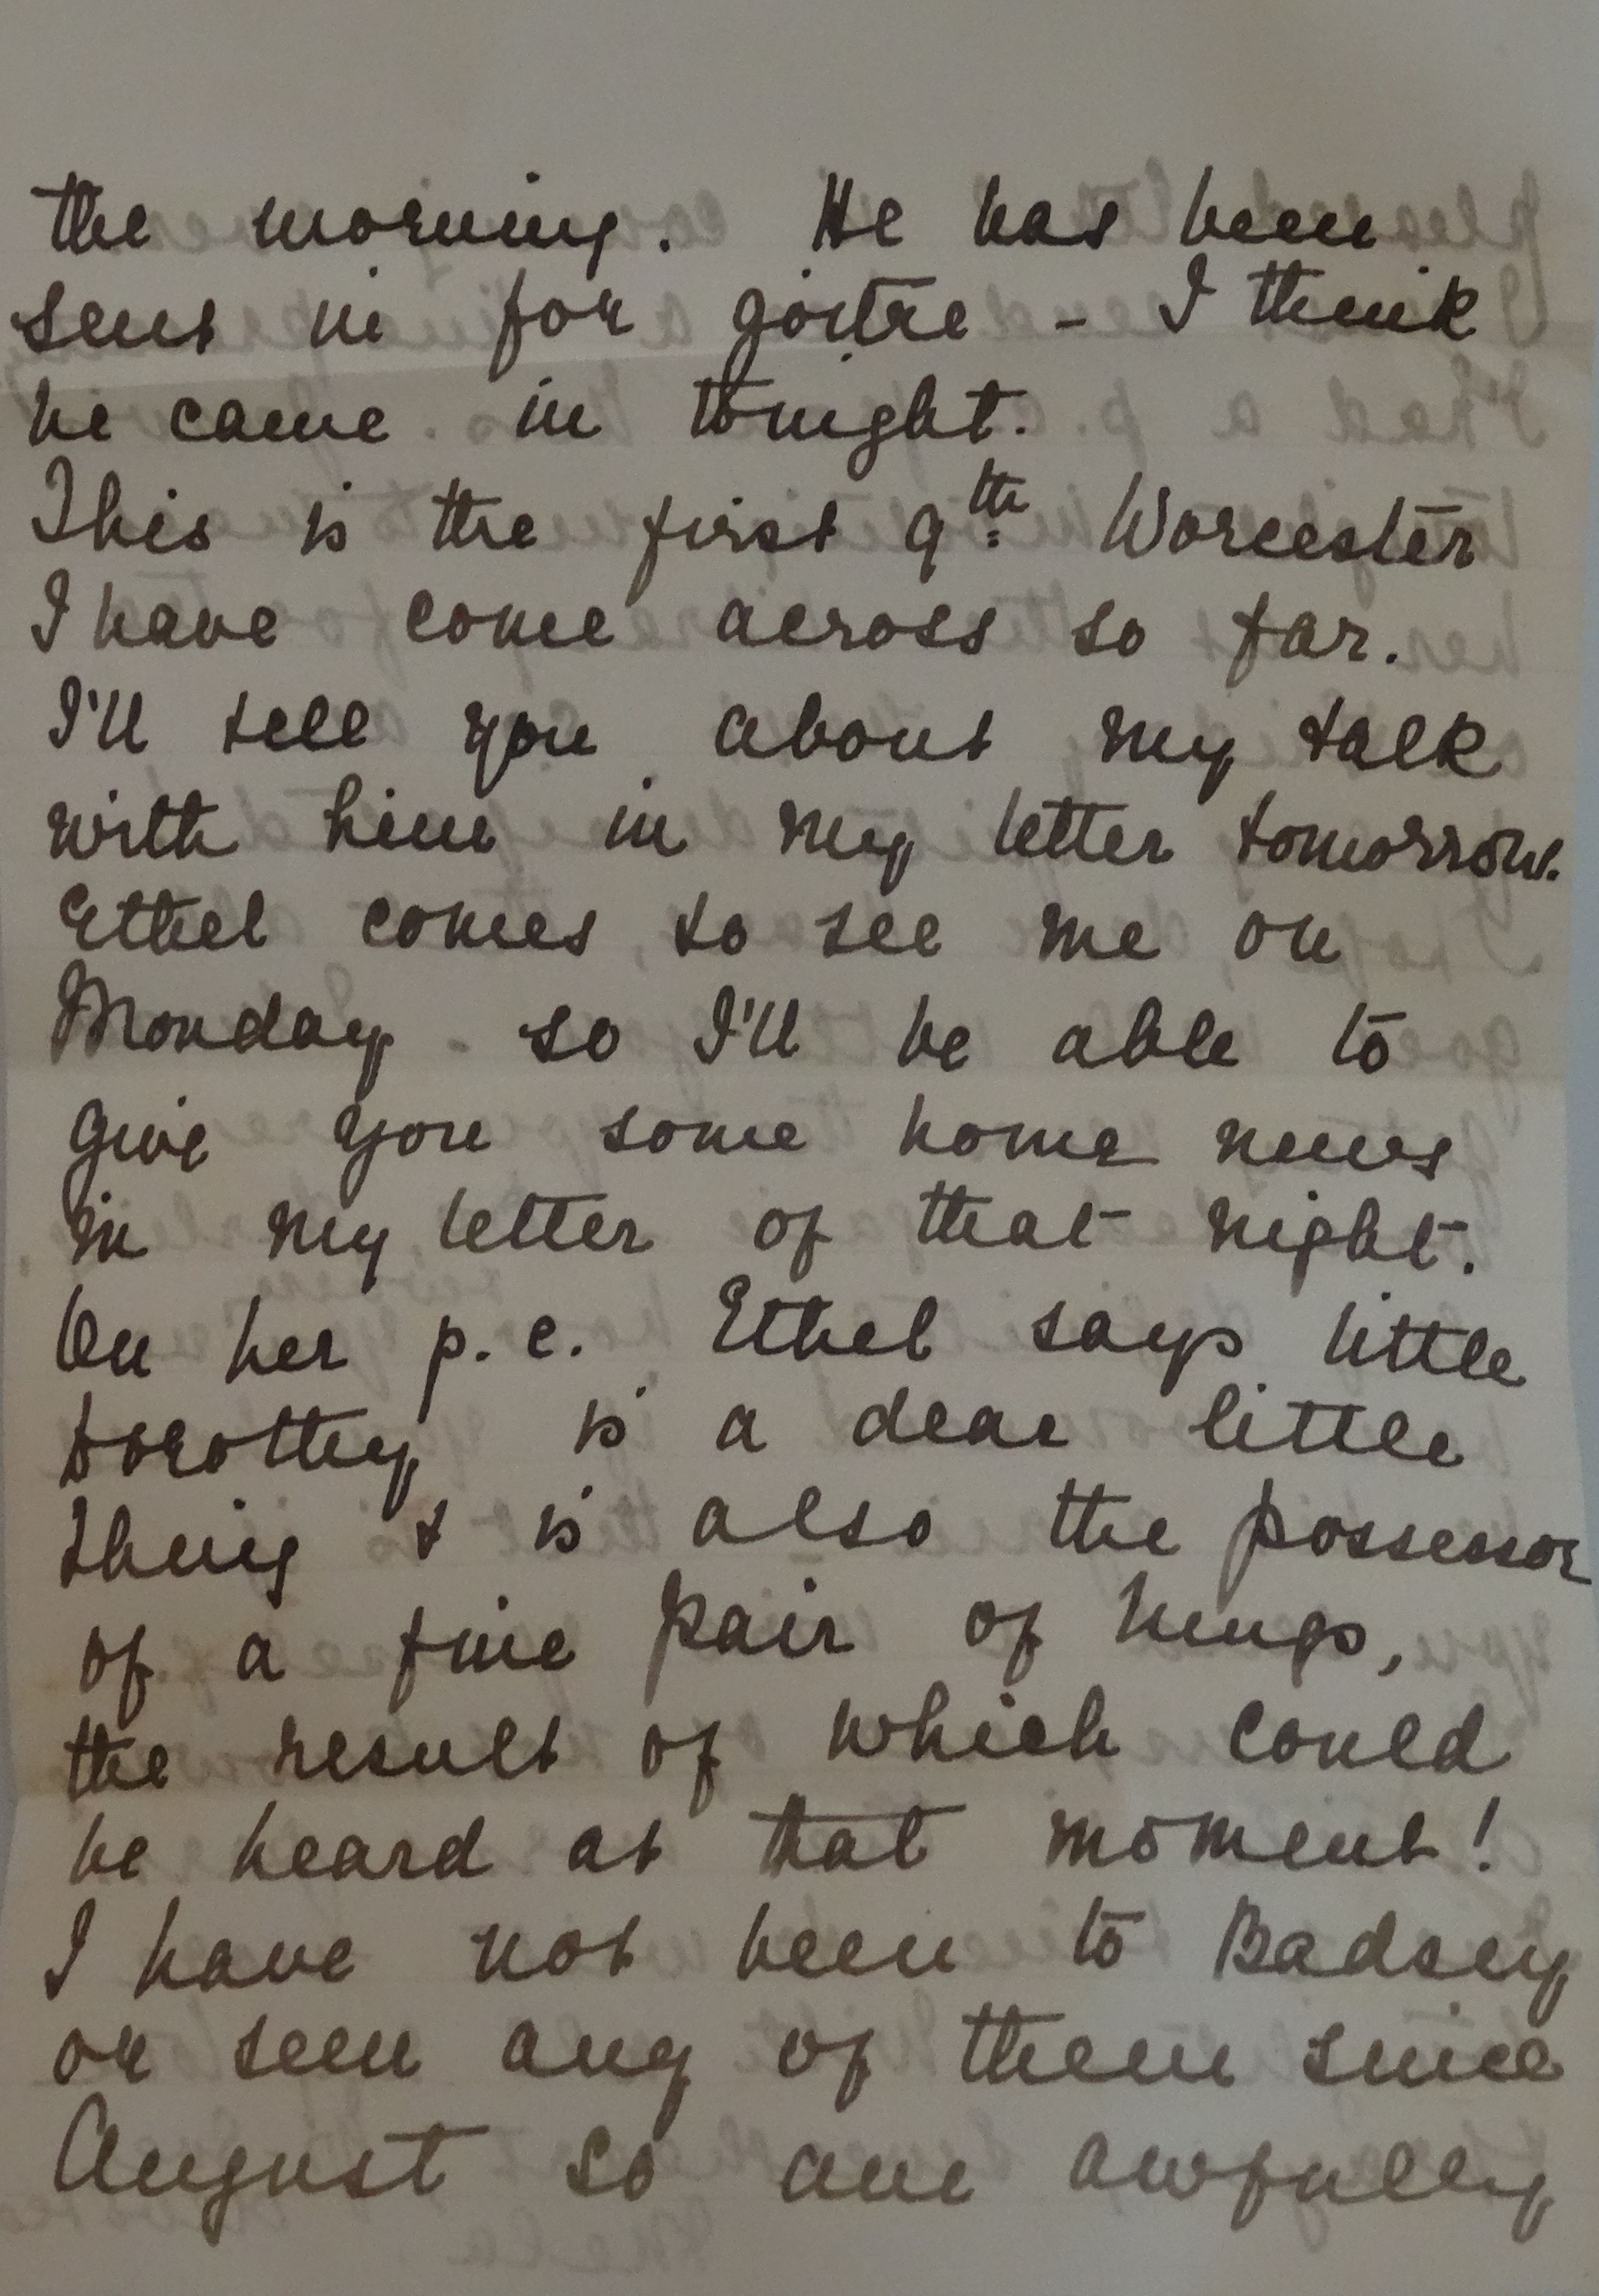 the morning. He has been
sent in for goitre - I think
he came in tonight.
This is the first 9th Worcester
I have come across so far.
I'll tell you about my talk
with him in my letter tomorrow.
Ethel comes to see me on
Monday - so I'll be able to
give you some home news
in my letter of that night.
On her p.c. Ethel says little
Dorothy is a dear little
thing & is also the possessor
of a fine pair of lungs,
the result of which could
be heard at that moment!
I have not been to Badsey
or seen any of them since
August so am awfully